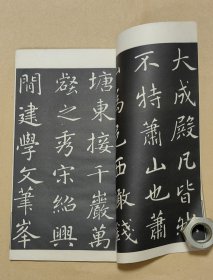 大成殿凡皆
不特蕭山也蕭
山為邑西敝錢
塘東接千巖萬
壑之秀宋紹興
間建學文筆峯